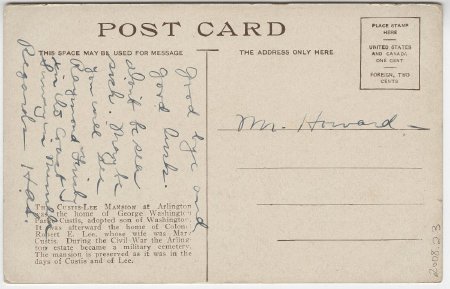 POST CARD
THIS SPACE MAY BE USED FOR MESSAGE
THE ADDRESS ONLY HERE
PLACE STAMP
HERE
UNITED STATES
AND CANADA
ONE CENT
FOREIGN, TWO
CENTS
Good bye and
Good luck.
Don't be sea
sick. Maybe
You will see
Raymond
Coast
in
Regards
Mr. Howard
THE CUSTIS-LEE MANSION at Arlington
was the home of George Washington
Parke Custis, adopted son of Washington.
It was afterward the home of Colonel
Robert E. Lee, whose wife was Mary
Custis. During the Civil War the Arling-
ton estate became a military cemetery.
The mansion is preserved as it was in the
days of Custis and of Lee.
2008.23